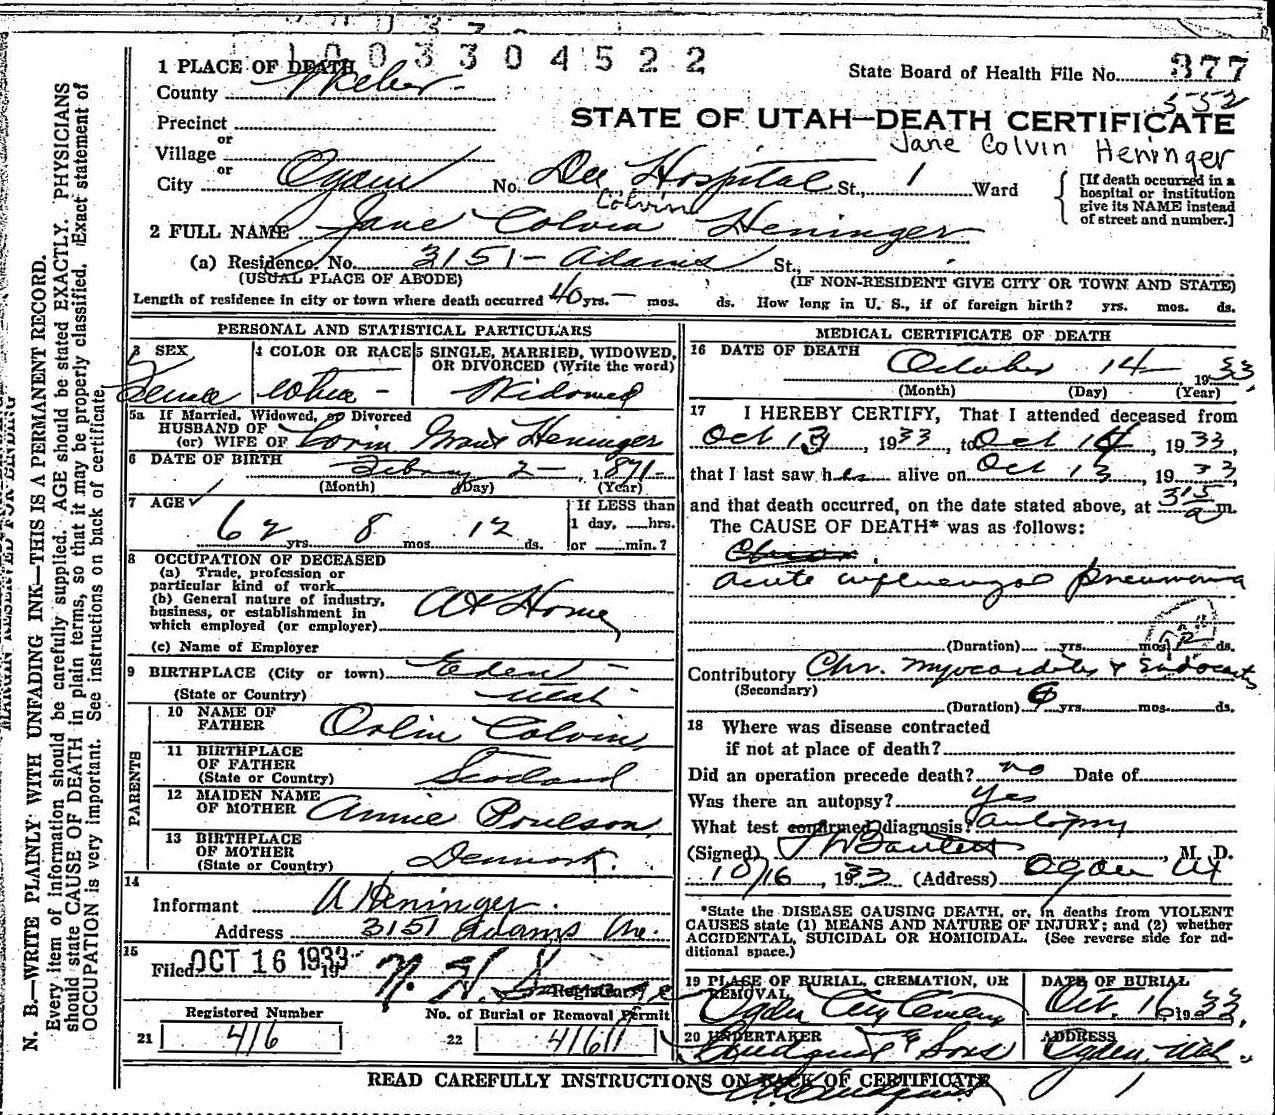 1003304522
1 PLACE OF DEATH
County Weber
State Board of Health File No. 377
552
Precinct
STATE OF UTAH—DEATH CERTIFICATE
or
Village
Jane Colvin Heninger
or
City Ogden No. Dee Hospital St., 1 Ward
[If death occurred in a hospital or institution give its NAME instead of street and number.]
Colvin
2 FULL NAME Jane Colvin Heninger
(a) Residence, No. 3151- Adams St.,
(USUAL PLACE OF ABODE) (IF NON-RESIDENT GIVE CITY OR TOWN AND STATE)
Length of residence in city or town where death occurred 40 yrs. — mos. ds. How long in U. S., if of foreign birth? yrs. mos. ds.
PERSONAL AND STATISTICAL PARTICULARS
3 SEX 4 COLOR OR RACE 5 SINGLE, MARRIED, WIDOWED, OR DIVORCED (Write the word)
Female White - Widowed
5a If Married, Widowed, or Divorced
HUSBAND OF
(or) WIFE OF Lorin Grant Heninger
6 DATE OF BIRTH 2 - 1871-
(Month) (Day) (Year)
7 AGE ✓ If LESS than
62 yrs. 8 mos. 12 ds. 1 day, ......hrs.
or ......min.?
8 OCCUPATION OF DECEASED
(a) Trade, profession or
particular kind of work
(b) General nature of industry,
business, or establishment in
which employed (or employer) At Home
(c) Name of Employer
9 BIRTHPLACE (City or town) Eden -
(State or Country) Utah
PARENTS
10 NAME OF FATHER Orlin Colvin
11 BIRTHPLACE OF FATHER (State or Country) Scotland
12 MAIDEN NAME OF MOTHER Annie Poulson
13 BIRTHPLACE OF MOTHER (State or Country) Denmark.
14
Informant Heninger.
Address 3151 Adams Ave.
15
Filed OCT 16 1933 19
Registrar
Registered Number No. of Burial or Removal Permit
21 416 22 41611
MEDICAL CERTIFICATE OF DEATH
16 DATE OF DEATH October 14 - 1933
(Month) (Day) (Year)
17 I HEREBY CERTIFY, That I attended deceased from
Oct 13, 1933, to Oct 14, 1933,
that I last saw her alive on Oct 13, 1933
and that death occurred, on the date stated above, at 315 a m.
The CAUSE OF DEATH* was as follows:
acute influenzal pneumonia
(Duration) yrs. mos. ds.
Contributory Chr. myocarditis & Endocarditis
(Secondary)
(Duration) 6 yrs. mos. ds.
18 Where was disease contracted
if not at place of death?
Did an operation precede death? no Date of
Was there an autopsy? yes
What test confirmed diagnosis? autopsy
(Signed) M. D.
10/16, 1933 (Address) Ogden Ut
*State the DISEASE CAUSING DEATH, or, in deaths from VIOLENT
CAUSES state (1) MEANS AND NATURE OF INJURY; and (2) whether
ACCIDENTAL, SUICIDAL OR HOMICIDAL. (See reverse side for ad-
ditional space.)
19 PLACE OF BURIAL, CREMATION, OR REMOVAL DATE OF BURIAL
Ogden City Cemetery Oct. 16 1933.
20 UNDERTAKER ADDRESS
Lindquist & Sons Ogden, Utah
READ CAREFULLY INSTRUCTIONS ON BACK OF CERTIFICATE
MARGIN RESERVED FOR BINDING
N. B.—WRITE PLAINLY WITH UNFADING INK—THIS IS A PERMANENT RECORD.
Every item of information should be carefully supplied. AGE should be stated EXACTLY. PHYSICIANS
should state CAUSE OF DEATH in plain terms, so that it may be properly classified. Exact statement of
OCCUPATION is very important. See instructions on back of certificate.